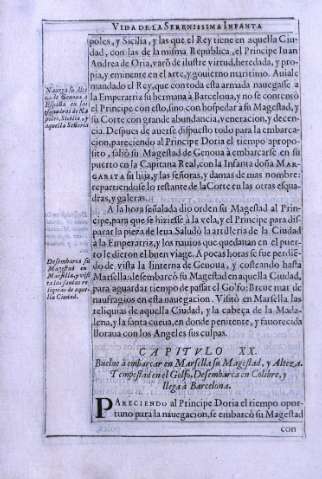 VIDA DE LA SERENISSIMA INFANTA
poles, y Sicilia, y las que el Rey tiene en aquella Ciu-
dad, con las de la misma Republica, el Principe Iuan
Andrea de Oria, varõ de ilustre virtud, heredada, y pro-
pia, y eminente en el arte, y gouierno maritimo. Auiale
mandado el Rey, que con toda esta armada nauegasse a
la Emperatriz su hermana à Barcelona, y no se contentò
el Principe con esso, sino con hospedar a su Magestad, y
su Corte con grande abundancia, veneracion, y decen-
cia. Despues de auerse dispuesto todo para la embarca-
cion, pareciendo al Principe Doria el tiempo aproposi-
to, saliò su Magestad de Genoua à embarcarse en su
puerto en la Capitana Real, con la Infanta doña MAR-
GARITA su hija, y las señoras, y damas de mas nombre:
repartiendose lo restante de la Corte en las otras esqua-
dras, y galeras.
A la hora señalada dio orden su Magestad al Prin-
cipe, para que se hiziesse à la vela, y el Principe para dis-
parar la pieza de leua. Saludò la artilleria de la Ciudad
à la Emperatriz, y los nauios que quedauan en el puer-
to le dieron el buen viage. A pocas horas se fue perdiẽ-
do de vista la linterna de Genoua, y costeando hasta
Marsella, desembarcò su Magestad en aquella Ciudad,
para aguardar tiempo de passar el Golfo: Breue mar de
naufragios en esta nauegacion. Visitò en Marsella las
reliquias de aquella Ciudad, y la cabeça de la Mada-
lena, y la santa cueua, en donde penitente, y fauorecida
lloraua con los Angeles sus culpas.
Nauega su Alte-
za de Genoua a
España en las
esquadras de Na-
poles, Sicilia, y
aquella Señoria
Desembarca su
Magestad en
Marsella, y visi-
ta las santas re-
liquias de aque-
lla Ciudad.
CAPITVLO XX.
Buelue à embarcar en Marsella su Magestad, y Alteza.
Tempestad en el Golfo, Desembarca en Colibre, y
llega à Barcelona.
PARECIENDO al Principe Doria el tiempo opor-
tuno para la nauegacion, se embarcò su Magestad
con